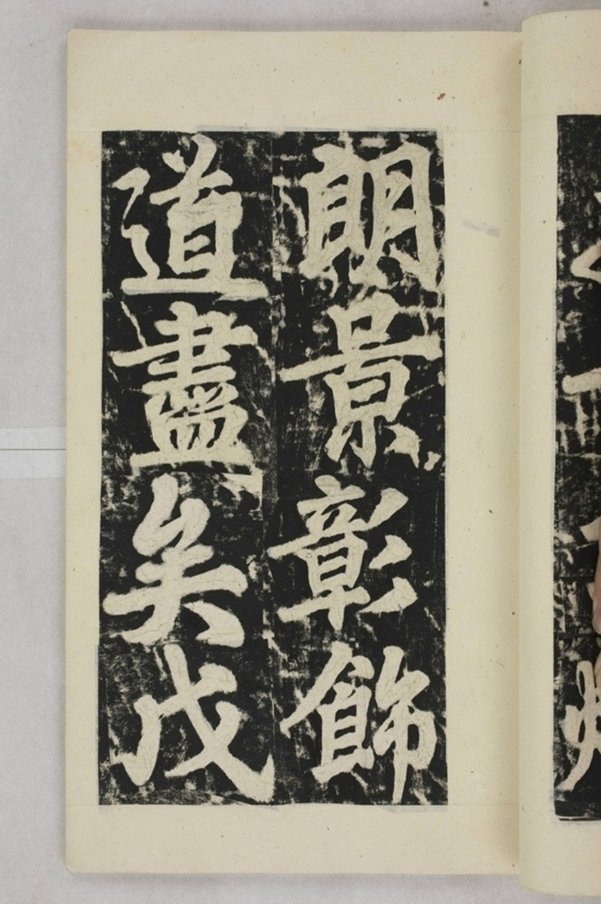 朗景彰飾
道盡矣戊